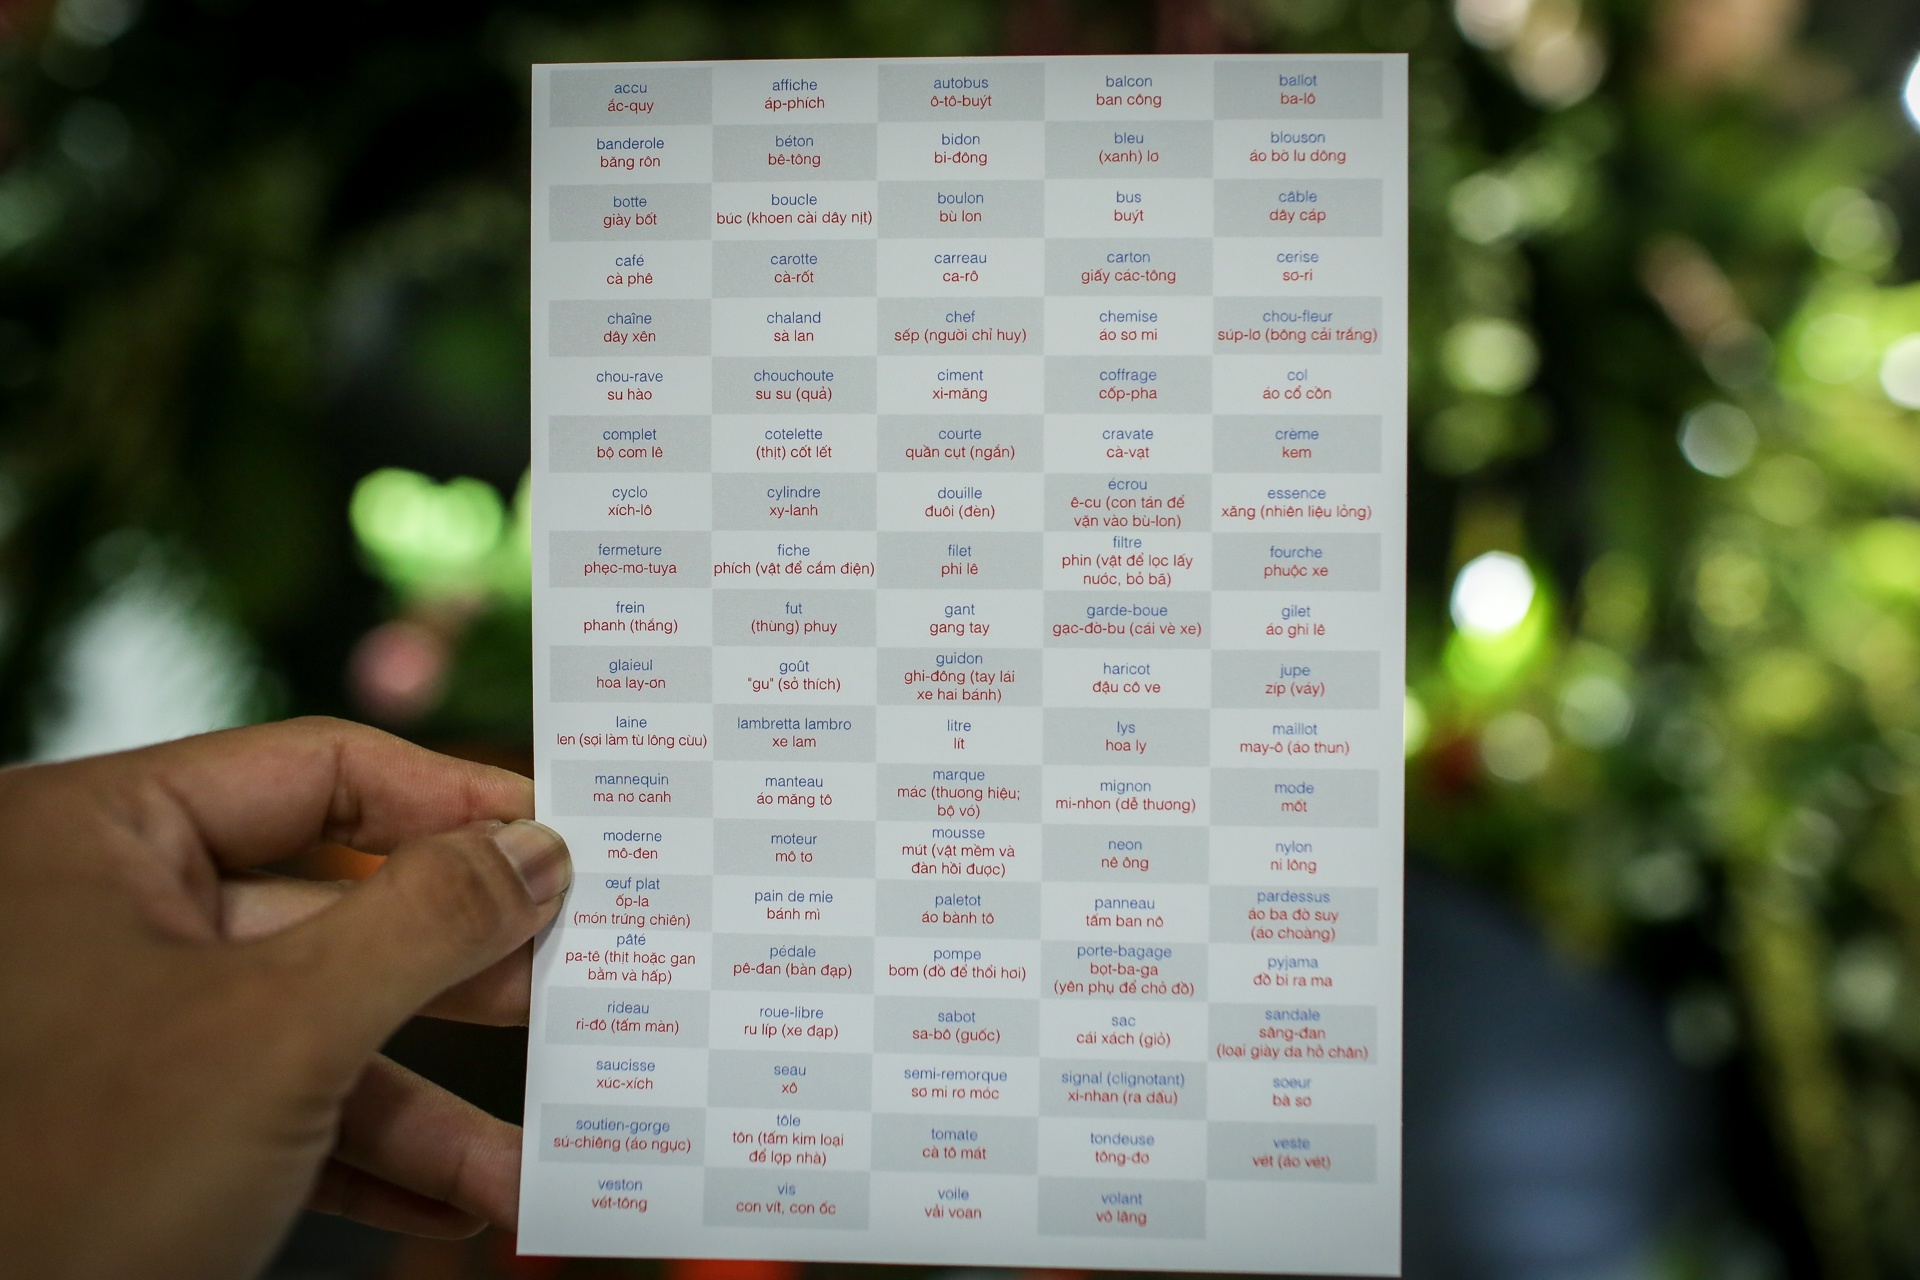 accu
ắc-quy
affiche
áp-phích
autobus
ô-tô-buýt
balcon
ban công
ballot
ba-lô
banderole
băng rôn
béton
bê-tông
bidon
bi-đông
bleu
(xanh) lơ
blouson
áo bờ lu dông
botte
giày bốt
boucle
búc (khoen cài dây nịt)
boulon
bù lon
bus
buýt
câble
dây cáp
café
cà phê
carotte
cà-rốt
carreau
ca-rô
carton
giấy các-tông
cerise
sơ-ri
chaîne
dây xên
chaland
sà lan
chef
sếp (người chỉ huy)
chemise
áo sơ mi
chou-fleur
súp-lơ (bông cải trắng)
chou-rave
su hào
chouchoute
su su (quả)
ciment
xi-măng
coffrage
cốp-pha
col
áo cổ cồn
complet
bộ com lê
cotelette
(thịt) cốt lết
courte
quần cụt (ngắn)
cravate
cà-vạt
crème
kem
cyclo
xích-lô
cylindre
xy-lanh
douille
đuôi (đèn)
écrou
ê-cu (con tán để
vặn vào bù-lon)
essence
xăng (nhiên liệu lỏng)
fermeture
phẹc-mơ-tuya
fiche
phích (vật để cắm điện)
filet
phi lê
filtre
phin (vật để lọc lấy
nước, bỏ bã)
fourche
phuộc xe
frein
phanh (thắng)
fut
(thùng) phuy
gant
gang tay
garde-boue
gạc-đờ-bu (cái vè xe)
gilet
áo ghi lê
glaieul
hoa lay-ơn
goût
"gu" (sở thích)
guidon
ghi-đông (tay lái
xe hai bánh)
haricot
đậu cô ve
jupe
zíp (váy)
laine
len (sợi làm từ lông cừu)
lambretta lambro
xe lam
litre
lít
lys
hoa ly
maillot
may-ô (áo thun)
mannequin
ma nơ canh
manteau
áo măng tô
marque
mác (thương hiệu;
bộ vó)
mignon
mi-nhon (dễ thương)
mode
mốt
moderne
mô-đen
moteur
mô tơ
mousse
mút (vật mềm và
đàn hồi được)
neon
nê ông
nylon
ni lông
œuf plat
ốp-la
(món trứng chiên)
pain de mie
bánh mì
paletot
áo bành tô
panneau
tấm ban nô
pardessus
áo ba đờ suy
(áo choàng)
pâté
pa-tê (thịt hoặc gan
bằm và hấp)
pédale
pê-đan (bàn đạp)
pompe
bơm (đồ để thổi hơi)
porte-bagage
bọt-ba-ga
(yên phụ để chở đồ)
pyjama
đồ bi ra ma
rideau
ri-đô (tấm màn)
roue-libre
ru líp (xe đạp)
sabot
sa-bô (guốc)
sac
cái xách (giỏ)
sandale
săng-đan
(loại giày da hở chân)
saucisse
xúc-xích
seau
xô
semi-remorque
sơ mi rơ móc
signal (clignotant)
xi-nhan (ra dấu)
soeur
bà sơ
soutien-gorge
sú-chiêng (áo ngực)
tôle
tôn (tấm kim loại
để lợp nhà)
tomate
cà tô mát
tondeuse
tông-đơ
veste
vét (áo vét)
veston
vét-tông
vis
con vít, con ốc
voile
vải voan
volant
vô lăng